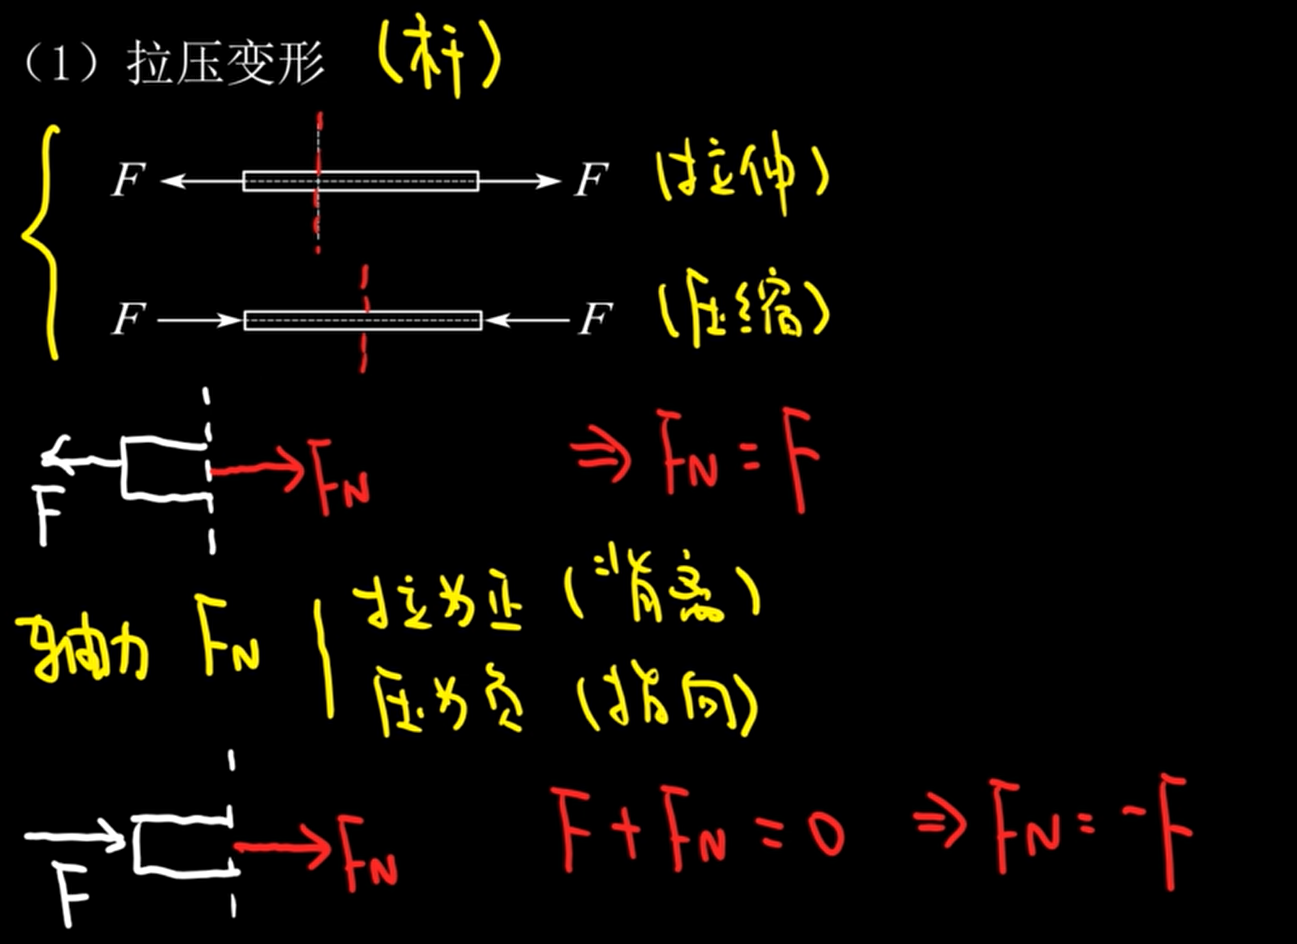 （1）拉压变形 （杆）
F F （拉伸）
F F （压缩）
F F_N ⇒ F_N = F
轴力 F_N
拉为正（背离）
压为负（指向）
F F_N F + F_N = 0 ⇒ F_N = -F